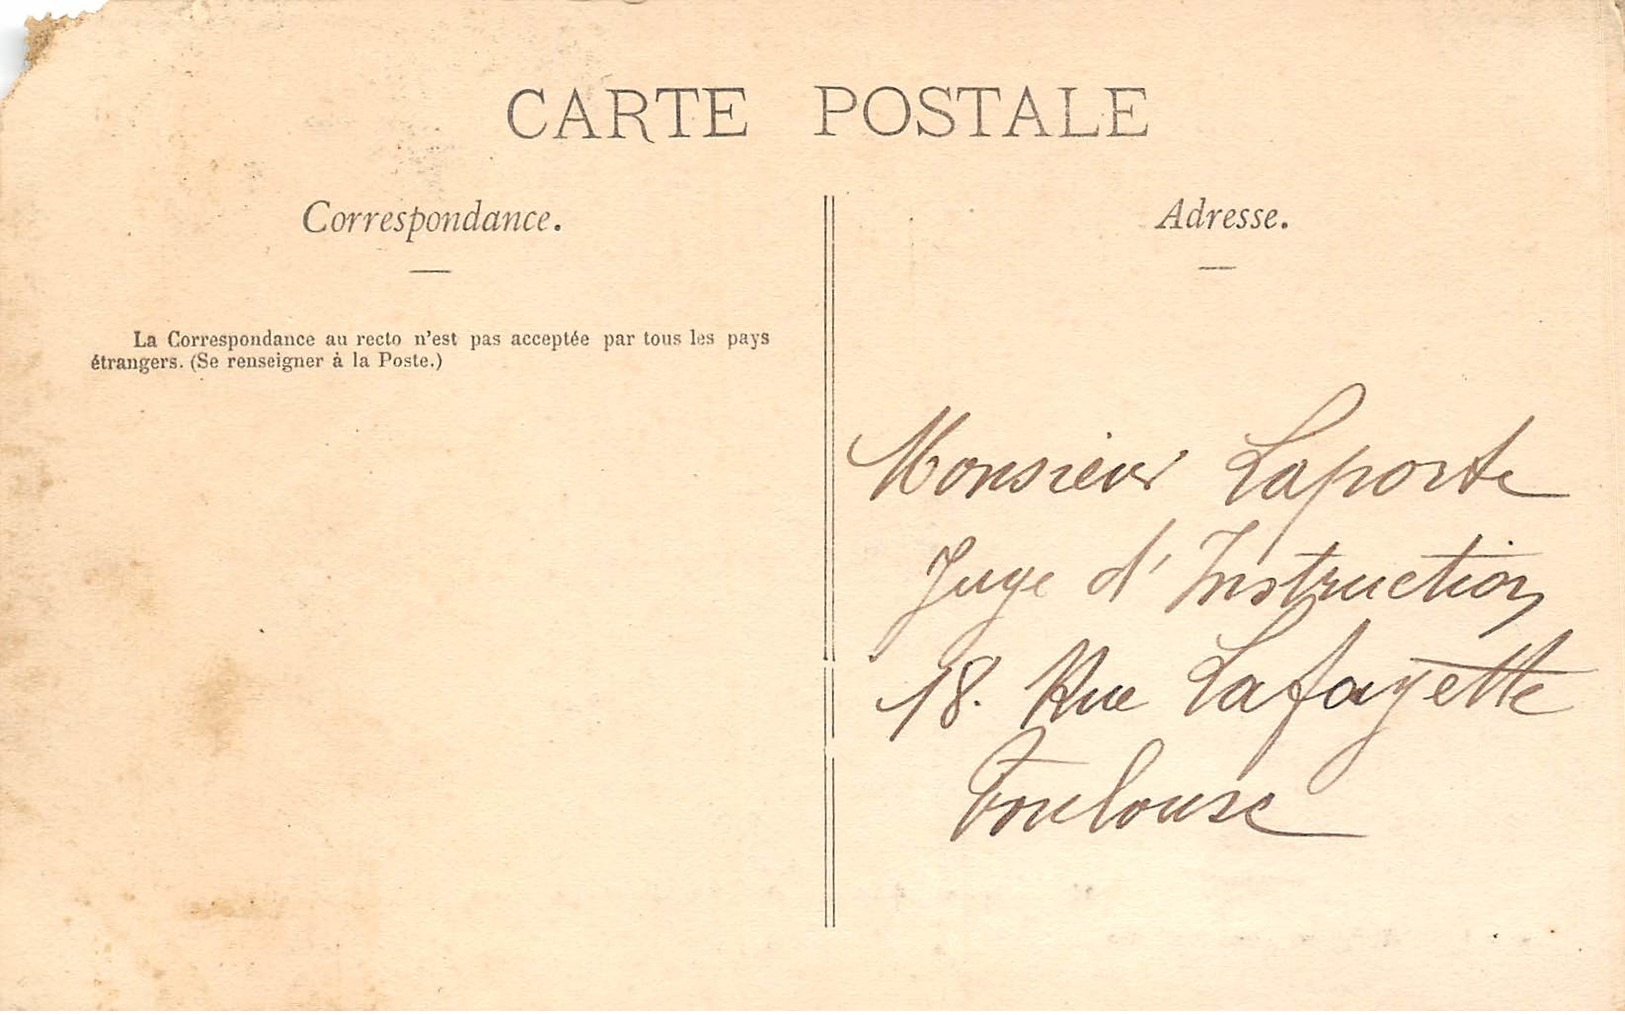 CARTE POSTALE
Correspondance.
La Correspondance au recto n'est pas acceptée par tous les pays
étrangers. (Se renseigner à la Poste.)
Adresse.
Monsieur Laporte
Juge d'Instruction
18. Rue Lafayette
Toulouse